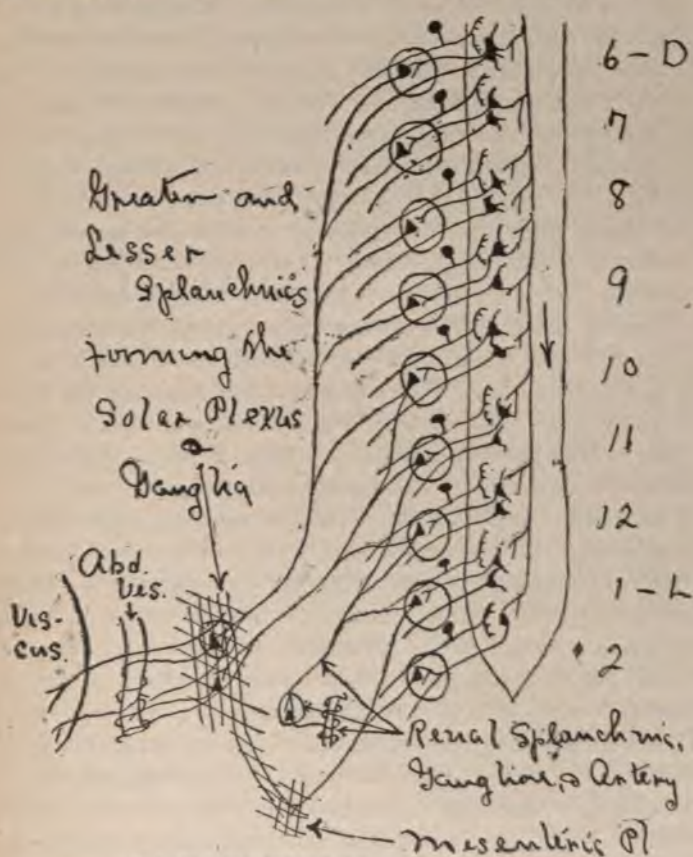 6 - D
7
8
9
10
11
12
1 - L
2
Greater and
Lesser
Splanchnics
forming the
Solar Plexus
Ganglia
Abd.
Ves.
Vis-
cus.
Renal Splanchnic,
Ganglion, & Artery
Mesenteric Pl